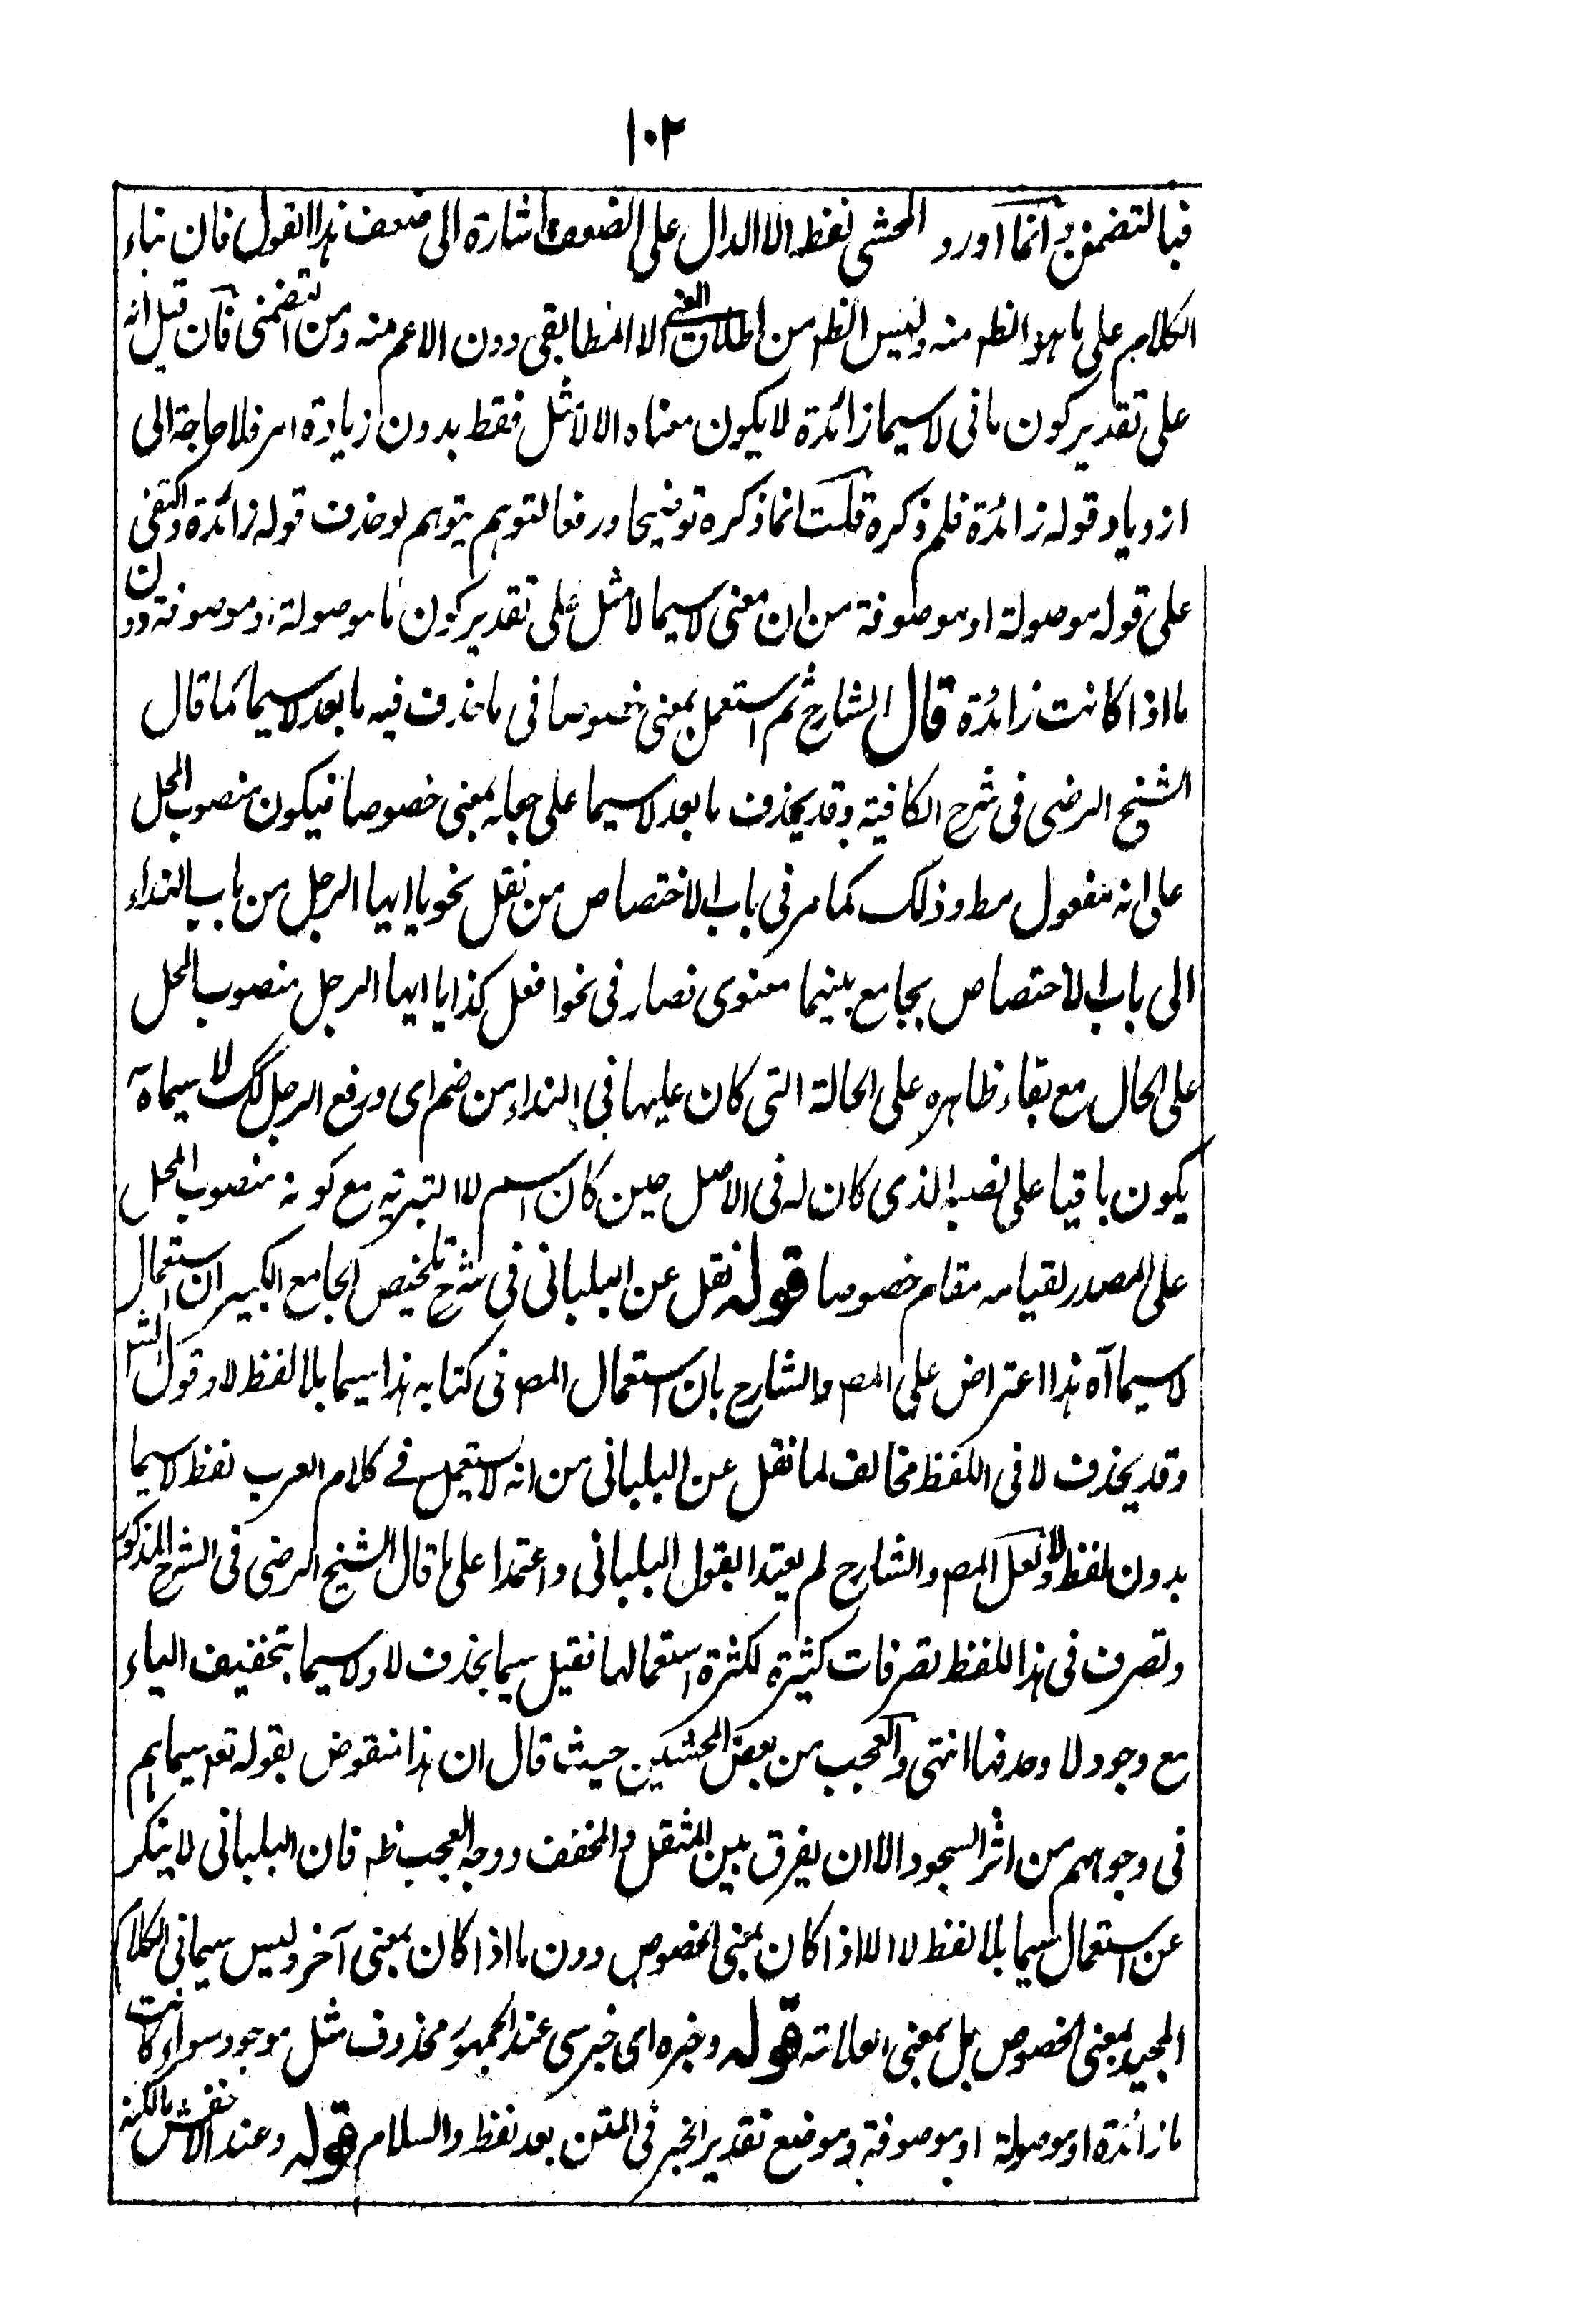 ١٠٢
فبالتضمن و انما اورد المحشی لفظ الا الدال علی الضعف اشارة الی ضعف هذا القول فان بناء
الکلام علی ما هو الظ منه و لیس الظ من اطلاق المعنی الا المطابقی دون الاعم منه ومن التضمنی فان قیل انه
علی تقدیر کون ما فی لا سیما زائدة لا یکون معناه الا لا مثل فقط بدون زیادة امر فلا حاجة الی
ازدیاد قوله زائدة فلم ذکره قلت انما ذکره توضیحا و رفعا لتوهم یتوهم لو حذف قوله زائدة و اکتفی
علی قوله موصولة او موصوفة من ان معنی لا سیما لا مثل علی تقدیر کون ما موصولة او موصوفة دون
ما اذا کانت زائدة قال الشارح ثم استعمل بمعنی خصوصا فی ما حذف فیه ما بعد لا سیما کما قال
الشیخ الرضی فی شرح الکافیة وقد یحذف ما بعد لا سیما علی جعله بمعنی خصوصا فیکون منصوب المحل
علی انه مفعول مط و ذلک کما مر فی باب الاختصاص من نقل نحو یا ایها الرجل من باب النداء
الی باب الاختصاص بجامع بینهما معنوی فصار فی نحو افعل کذا یا ایها الرجل منصوب المحل
علی الحال مع بقاء ظاهره علی الحالة التی کان علیها فی النداء من ضم ای و رفع الرجل کک لا سیما آه
یکون باقیا علی نصبه الذی کان له فی الاصل حین کان اسم لا التبریة مع کونه منصوب المحل
علی المصدر لقیامه مقام خصوصا قوله نقل عن البلبانی فی شرح تلخیص الجامع الکبیر ان استعمال
لا سیما آه هذا اعتراض علی المص والشارح بان استعمال المص فی کتابه هذا سیما بلا لفظ لا و قول الش
وقد یحذف لا فی اللفظ مخالف لما نقل عن البلبانی من انه لا یستعمل فی کلام العرب لفظ لا سیما
بدون لفظ لا ولعل المص والشارح لم یعتدا بقول البلبانی و اعتمدا علی ما قال الشیخ الرضی فی الشرح المذکور
وتصرف فی هذا اللفظ تصرفات کثیرة لکثرة استعمالها فقیل سیما بحذف لا و لا سیما بتخفیف الیاء
مع وجود لا وحذفها انتهی والعجب من بعض المحشیین حیث قال ان هذا منقوض بقوله تعه سیماهم
فی وجوههم من اثر السجود الا ان یفرق بین المثقل و المخفف و وجه العجب ظ فان البلبانی لا ینکر
عن استعمال سیما بلا لفظ لا الا اذا کان بمعنی الخصوص دون ما اذا کان بمعنی آخر و لیس سیما فی الکلام
المجید بمعنی الخصوص بل بمعنی العلامة قوله وخبره ای خبر سی عند الجمهور محذوف مثل موجود سواء کانت
ما زائدة او موصولة او موصوفة وموضع تقدیر الخبر فی المتن بعد لفظ والسلام قوله وعند الاخفش